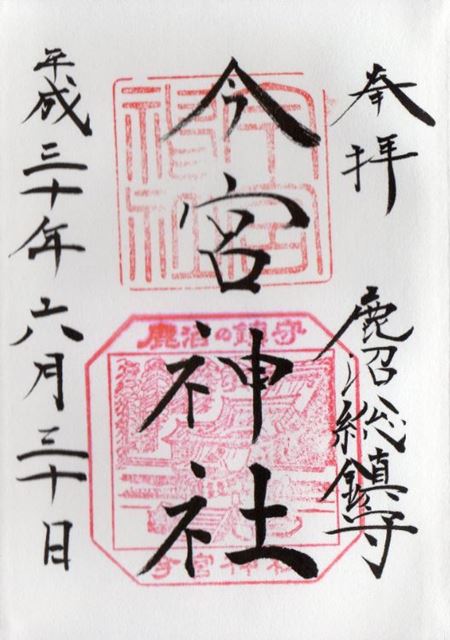 奉拝
鹿沼総鎮守
今宮神社
平成三十年六月三十日
今宮神社
鹿沼の鎮守
今宮神社